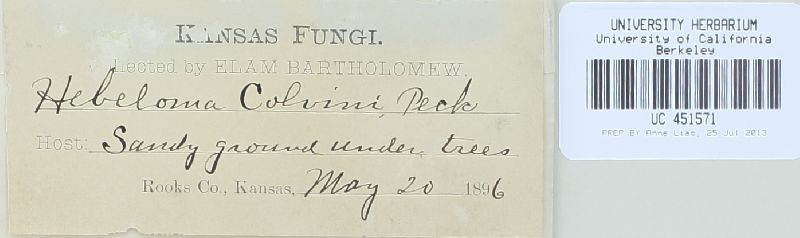 KANSAS FUNGI.
lected by ELAM BARTHOLOMEW.
Hebeloma Colvini, Peck
Host: Sandy ground under trees
Rooks Co., Kansas, May 20 1896
UNIVERSITY HERBARIUM
University of California
Berkeley
UC 451571
PREP BY Anne Liao, 25 Jul 2013